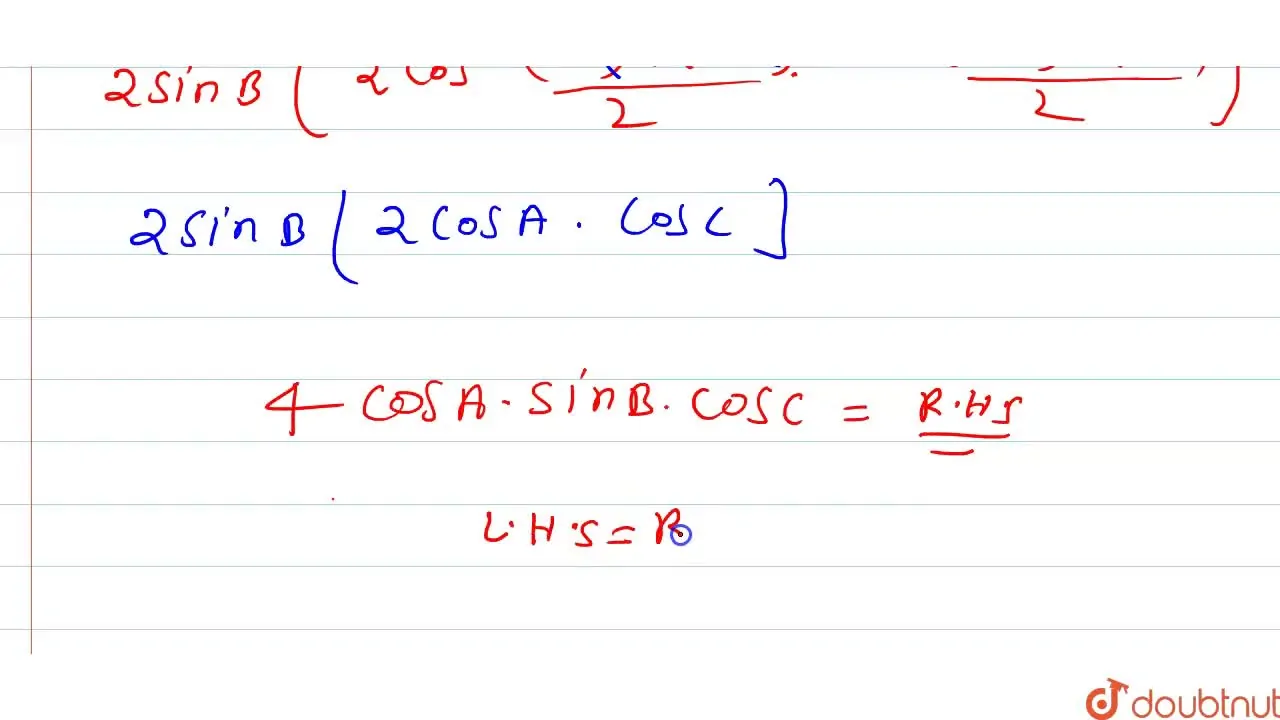 2 sin B [ 2 cos ( 2 2 ) ]
2 sin B [ 2 cos A . cos C ]
4 cos A . sin B . cos C = R.H.S
L.H.S = R
doubtnut